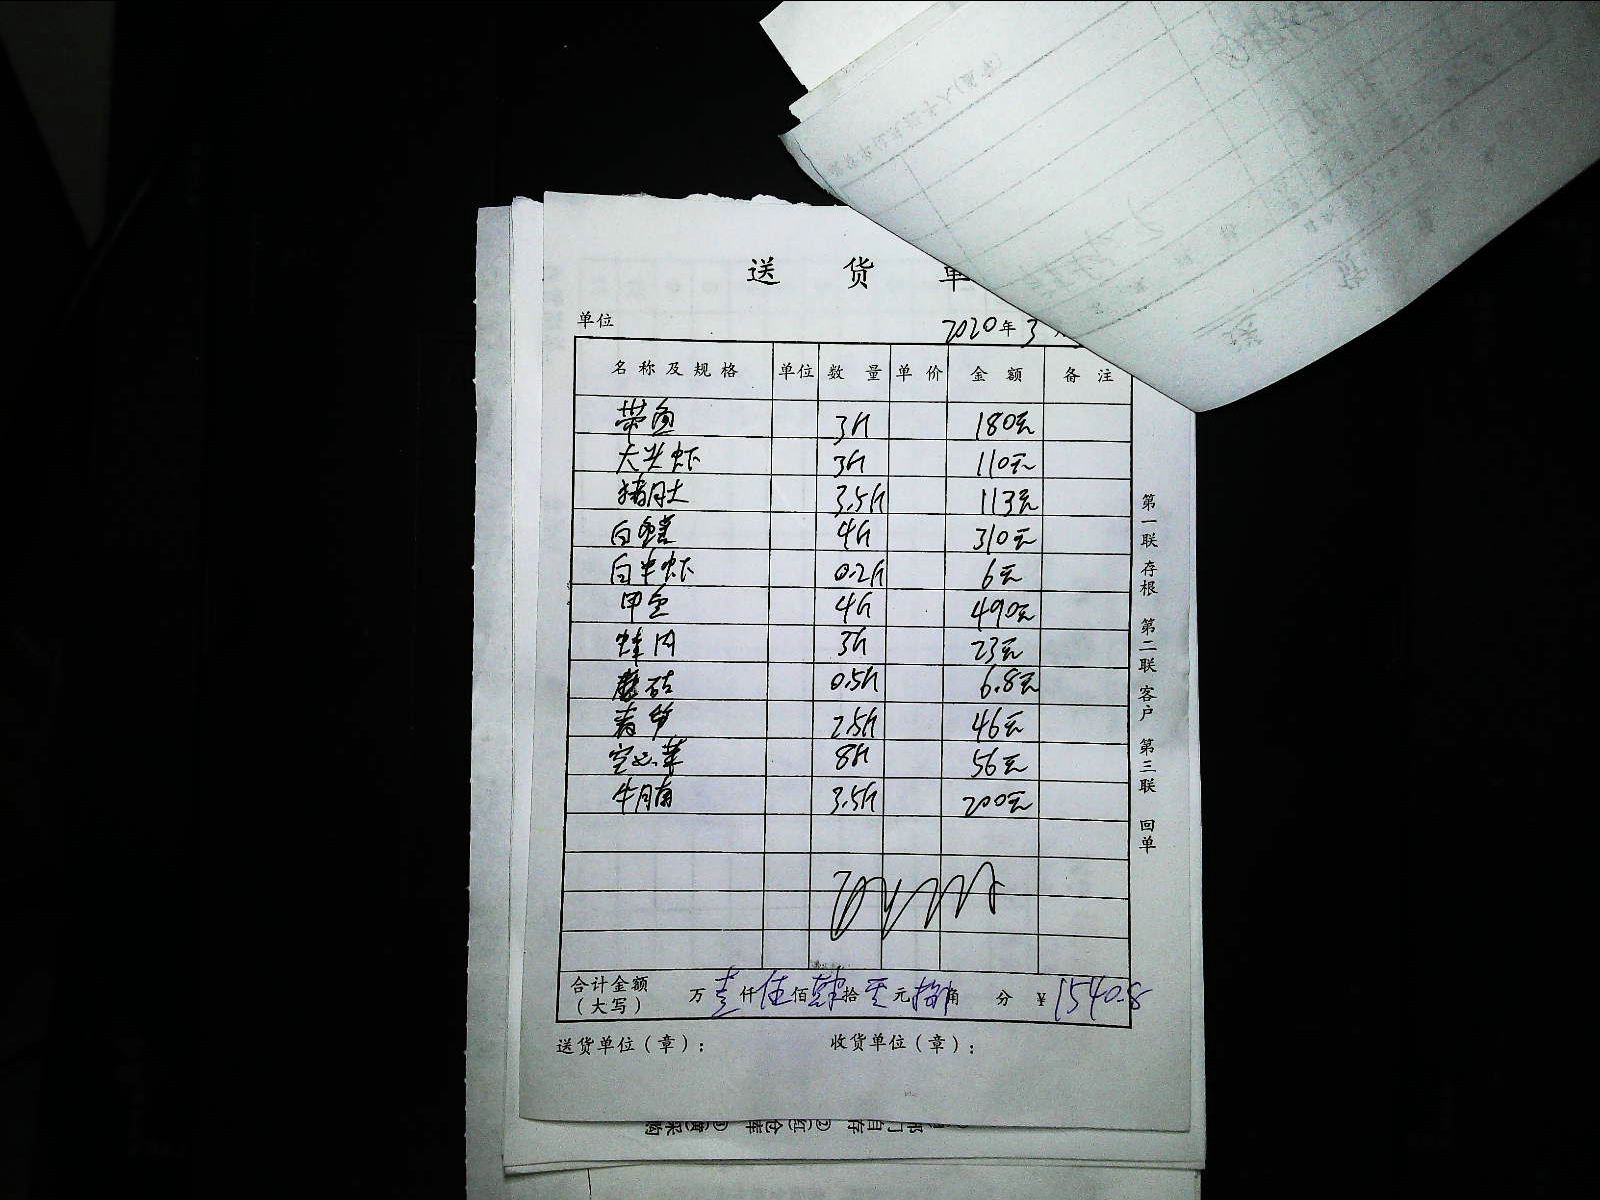 送 货 单
单位
2020年3
名称及规格 单位 数量 单价 金额 备注
带鱼 3斤 180元
大头虾 3斤 110元
猪肚 3.5斤 113元
白鳝 4斤 310元
白半虾 0.2斤 6元
甲鱼 4斤 490元
蚌肉 3斤 23元
蘑菇 0.5斤 6.8元
青笋 2.5斤 46元
空心菜 8斤 56元
牛腩 3.5斤 200元
合计金额
(大写) 万壹仟伍佰肆拾零元捌角 分 ¥1540.8
送货单位(章): 收货单位(章):
第一联 存根 第二联 客户 第三联 回单